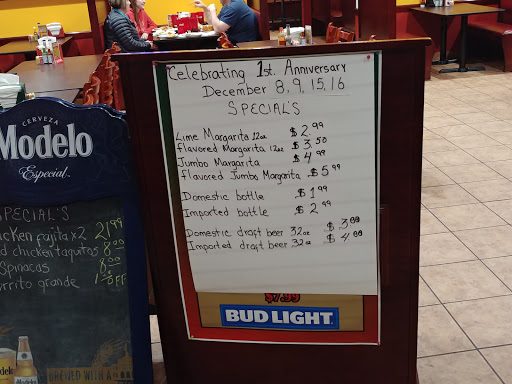 Celebrating 1st. Anniversary
December 8, 9, 15, 16
SPECIAL'S
Lime Margarita 12oz $2.99
flavored Margarita 12oz $3.50
Jumbo Margarita $4.99
flavored Jumbo Margarita $5.99
Domestic bottle $1.99
Imported bottle $2.99
Domestic draft beer 32oz $3.00
Imported draft beer 32oz $4.00
$7.99
BUD LIGHT
CERVEZA
Modelo
Especial
SPECIAL'S
cken fajita x2 21.99
d chicken taquitos 8.00
Spinacas 8.00
urrito grande OFF
BREWED WITH A